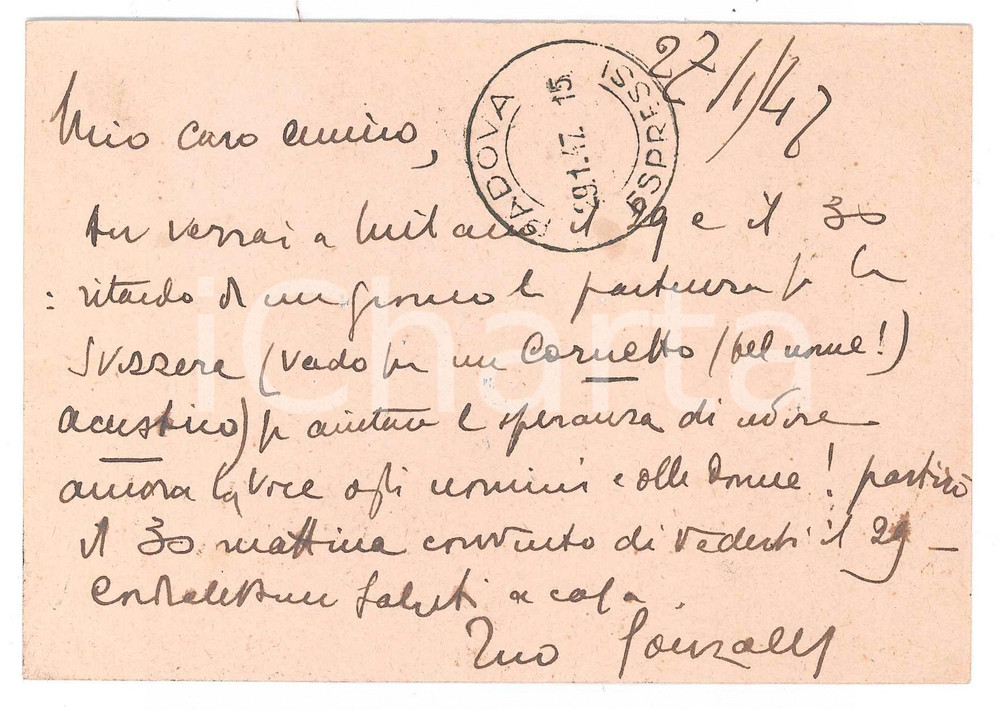 27/1/47
PADOVA 29.1.47 15 ESPRESSI
Mio caro amico,
tu verrai a Milano il 29 e il 30
ritardo di un giorno la partenza p la
Svizzera (vado per un Cornetto (bel nome!)
acustico) p aiutare la speranza di udire
ancora la voce degli uomini e delle donne! partirò
il 30 mattina convinto di vederti il 29 –
Cordialissimi saluti a casa.
Tuo
iCharta